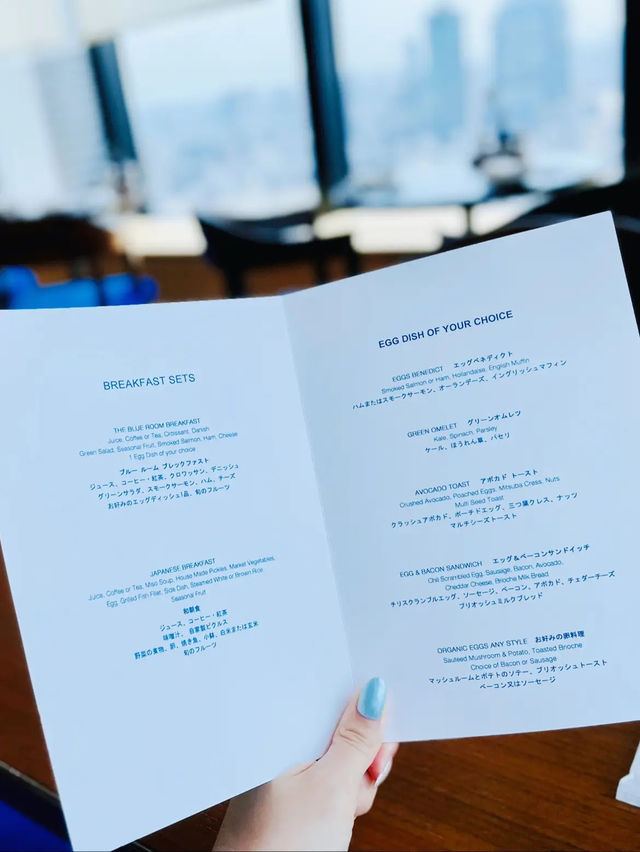 BREAKFAST SETS
THE BLUE ROOM BREAKFAST
Juice, Coffee or Tea, Croissant, Danish
Green Salad, Seasonal Fruit, Smoked Salmon, Ham, Cheese
1 Egg Dish of your choice
ブルー ルーム ブレックファスト
ジュース、コーヒー・紅茶、クロワッサン、デニッシュ
グリーンサラダ、スモークサーモン、ハム、チーズ
お好みのエッグディッシュ1品、旬のフルーツ
JAPANESE BREAKFAST
Juice, Coffee or Tea, Miso Soup, House Made Pickles, Market Vegetables,
Egg, Grilled Fish Filet, Side Dish, Steamed White or Brown Rice
Seasonal Fruit
和朝食
ジュース、コーヒー・紅茶
味噌汁、自家製ピクルス
野菜の煮物、卵、焼き魚、小鉢、白米または玄米
旬のフルーツ
EGG DISH OF YOUR CHOICE
EGGS BENEDICT エッグベネディクト
Smoked Salmon or Ham, Hollandaise, English Muffin
ハムまたはスモークサーモン、オーランデーズ、イングリッシュマフィン
GREEN OMELET グリーンオムレツ
Kale, Spinach, Parsley
ケール、ほうれん草、パセリ
AVOCADO TOAST アボカド トースト
Crushed Avocado, Poached Eggs, Mitsuba Cress, Nuts
Multi Seed Toast
クラッシュアボカド、ポーチドエッグ、三つ葉クレス、ナッツ
マルチシーズトースト
EGG & BACON SANDWICH エッグ&ベーコンサンドイッチ
Chili Scrambled Egg, Sausage, Bacon, Avocado,
Cheddar Cheese, Brioche Milk Bread
チリスクランブルエッグ、ソーセージ、ベーコン、アボカド、チェダーチーズ
ブリオッシュミルクブレッド
ORGANIC EGGS ANY STYLE お好みの卵料理
Sauteed Mushroom & Potato, Toasted Brioche
Choice of Bacon or Sausage
マッシュルームとポテトのソテー、ブリオッシュトースト
ベーコン又はソーセージ